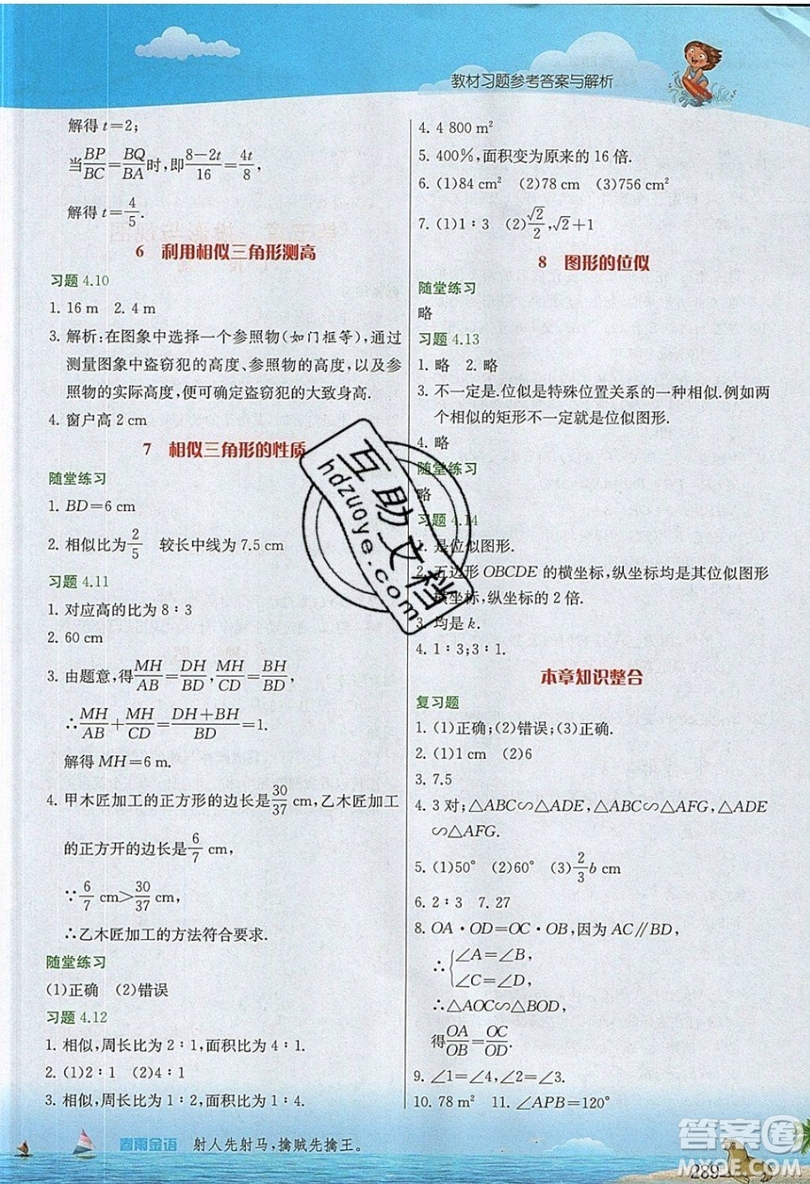 教材习题参考答案与解析
解得t=2;
当BP/BC=BQ/BA时,即(8-2t)/16=4t/8,
解得t=4/5.
6 利用相似三角形测高
习题 4.10
1. 16 m 2. 4 m
3. 解析:在图象中选择一个参照物(如门框等),通过
测量图象中盗窃犯的高度、参照物的高度,以及参
照物的实际高度,便可确定盗窃犯的大致身高.
4. 窗户高 2 cm
7 相似三角形的性质
随堂练习
1. BD=6 cm
2. 相似比为2/5 较长中线为 7.5 cm
习题 4.11
1. 对应高的比为 8∶3
2. 60 cm
3. 由题意,得MH/AB=DH/BD,MH/CD=BH/BD,
∴MH/AB+MH/CD=(DH+BH)/BD=1.
解得 MH=6 m.
4. 甲木匠加工的正方形的边长是30/37 cm,乙木匠加工
的正方开的边长是6/7 cm,
∵6/7 cm>30/37 cm,
∴乙木匠加工的方法符合要求.
随堂练习
(1)正确 (2)错误
习题 4.12
1. 相似,周长比为 2∶1,面积比为 4∶1.
2. (1)2∶3 (2)2∶3
3. 相似,周长比为 1∶2,面积比为 1∶4.
4. 4 800 m²
5. 400%,面积变为原来的 16 倍.
6. (1)84 cm² (2)78 cm (3)756 cm²
7. (1)1∶3 (2)√2/2,√2+1
8 图形的位似
随堂练习
略
习题 4.13
1. 略 2. 略
3. 不一定是.位似是特殊位置关系的一种相似.例如两
个相似的矩形不一定就是位似图形.
4. 略
随堂练习
略
习题 4.14
1. 是位似图形.
2. 五边形 OBCDE 的横坐标,纵坐标均是其位似图形
横坐标,纵坐标的 2 倍.
3. 均是 k.
4. 1∶3;3∶1.
本章知识整合
复习题
1. (1)正确;(2)错误;(3)正确.
2. (1)1 cm (2)6
3. 7.5
4. 3 对;△ABC∽△ADE,△ABC∽△AFG,
△ADE∽△AFG.
5. (1)50° (2)60° (3)2/3 b cm
6. 2∶3 7. 27
8. OA·OD=OC·OB,因为 AC∥BD,
∴{∠A=∠B,
∠C=∠D,
∴△AOC∽△BOD,
得OA/OB=OC/OD.
9. ∠1=∠2=∠3=∠4.
10. 78 m² 11. ∠APB=120°
互助文档
hdzuoye.com
春雨金语 射人先射马,擒贼先擒王。
289
答案圈
MXQE.COM